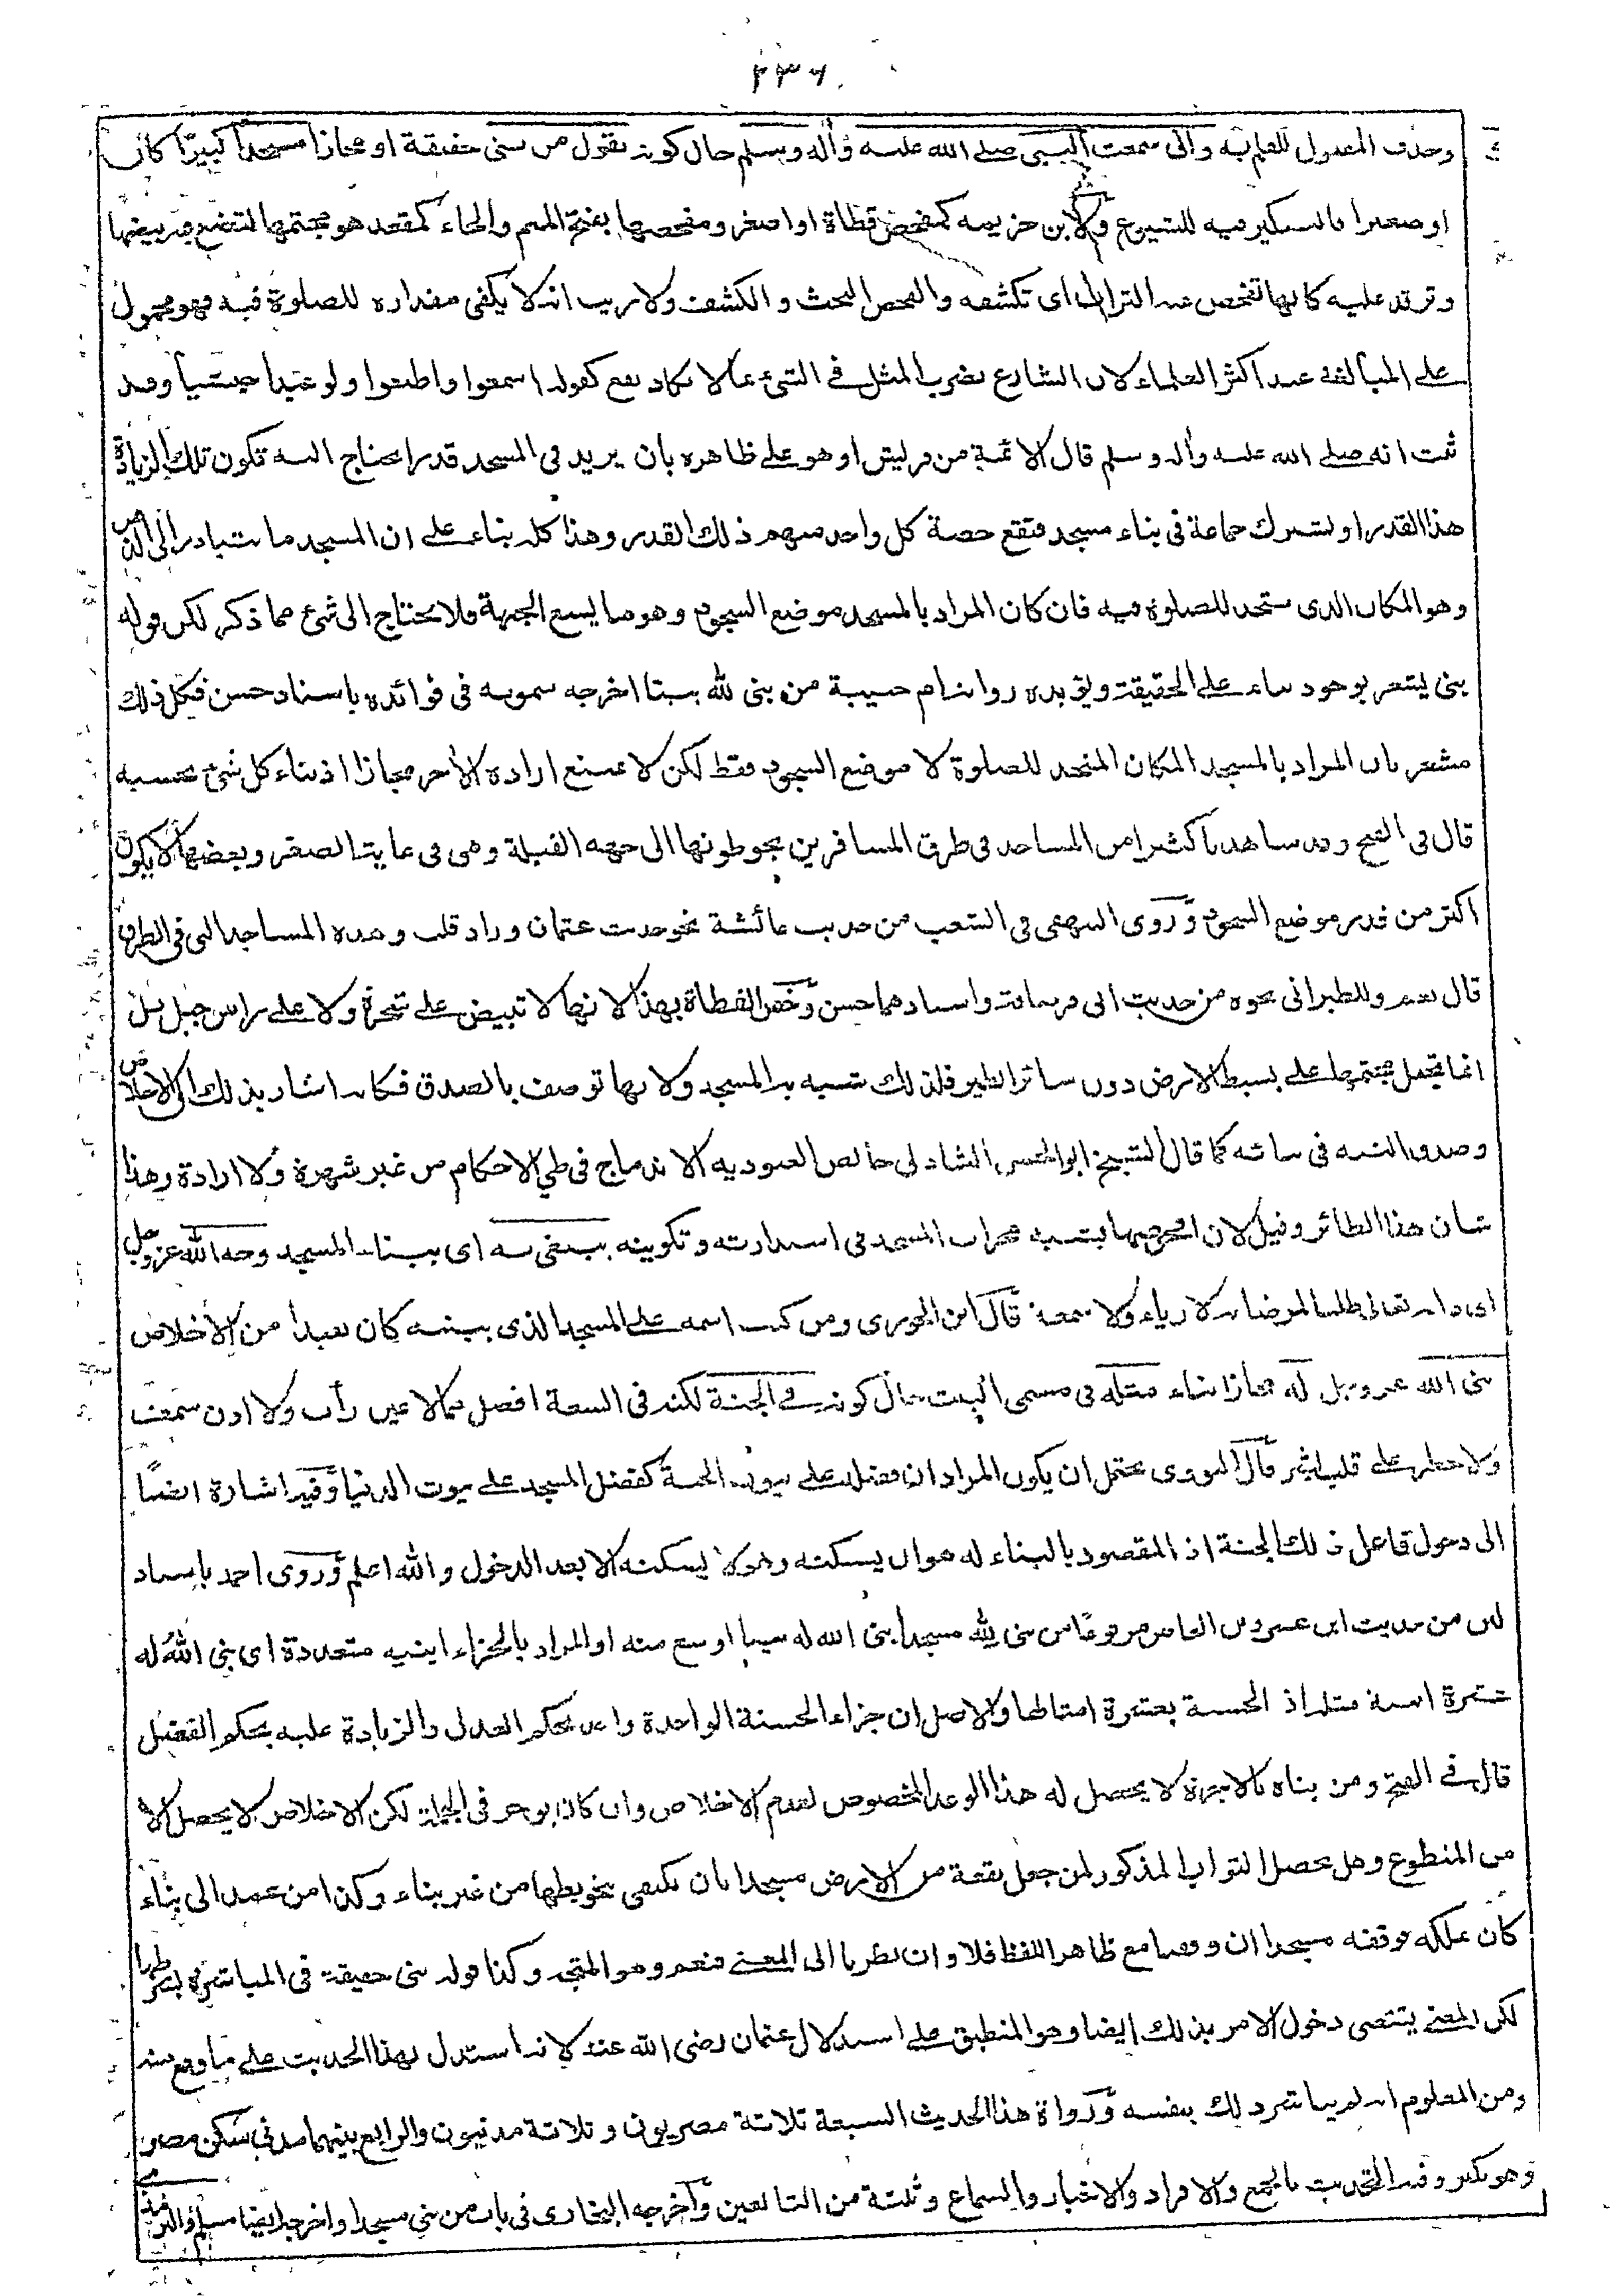 ٢٣٦
وحذف المفعول للعلم به وانى سمعت النبي صلى الله عليه وآله وسلم حال كونه يقول من بنى حقيقة او مجازا مسجدا كبيرا كان
او صغيرا فالتنكير فيه للشيوع ولابن خزيمه كمفحص قطاة او اصغر ومفحصها بفتح الميم والحاء كمقعد هو مجثمها لتضع فيه بيضها
وترقد عليه كانها تفحص عنه التراب اى تكشفه والفحص البحث والكشف ولا ريب انه لا يكفى مقداره للصلوة فيه فهو محمول
على المبالغة عند اكثر العلماء لان الشارع يضرب المثل فى الشئ بما لا يكاد يقع كقوله اسمعوا واطيعوا ولو عبدا حبشيا وقد
ثبت انه صلى الله عليه وآله وسلم قال الائمة من قريش او هو على ظاهره بان يزيد فى المسجد قدرا يحتاج اليه تكون تلك الزيادة
هذا القدر او يشترك جماعة فى بناء مسجد فتقع حصة كل واحد منهم ذلك القدر وهذا كله بناء على ان المسجد ما يتبادر الى الذهن
وهو المكان الذى يتخذ للصلوة فيه فان كان المراد بالمسجد موضع السجود وهو ما يسع الجبهة فلا يحتاج الى شئ مما ذكر لكن قوله
بنى يشعر بوجود بناء على الحقيقة ويؤيده رواية ام حبيبة من بنى لله بيتا اخرجه سمويه فى فوائده باسناد حسن فكل ذلك
مشعر بان المراد بالمسجد المكان المتخذ للصلوة لا موضع السجود فقط لكن لا يمتنع ارادة الآخر مجازا اذ بناء كل شئ بحسبه
قال فى الفتح وقد شاهدنا كثيرا من المساجد فى طرق المسافرين يحوطونها الى جهة القبلة وهى فى غاية الصغر وبعضها لا يكون
اكثر من قدر موضع السجود وروى البيهقى فى الشعب من حديث عائشة نحو حديث عثمان وزاد قلت وهذه المساجد التى فى الطرق
قال نعم وللطبرانى نحوه من حديث ابى قرصافة واسنادهما حسن وخص القطاة بهذا لانها لا تبيض على شجرة ولا على راس جبل بل
انما تجعل مجثمها على بسيط الارض دون سائر الطير فلذلك شبه به المسجد ولانها توصف بالصدق فكانه اشار بذلك الى الاخلاص
وصدق النية فى بنائه كما قال الشيخ ابو الحسن الشاذلى خالص العبودية الاندماج فى طى الاحكام من غير شهرة ولا ارادة وهذا
شان هذا الطائر وقيل لان افحوصها يشبه محراب المسجد فى استدارته وتكوينه يبتغى به اى ببناء المسجد وجه الله عز وجل
اى ذاته تعالى طلبا لمرضاته لا رياء ولا سمعة قال ابن الجوزى ومن كتب اسمه على المسجد الذى يبنيه كان بعيدا من الاخلاص
بنى الله عز وجل له مجازا بناء مثله فى مسمى البيت حال كونه فى الجنة لكنه فى السعة افضل مما لا عين رأت ولا اذن سمعت
ولا خطر على قلب بشر قال النووى يحتمل ان يكون المراد ان فضله على بيوت الجنة كفضل المسجد على بيوت الدنيا وفيه اشارة ايضا
الى دخول فاعل ذلك الجنة اذ المقصود بالبناء له هو ان يسكنه وهو لا يسكنه الا بعد الدخول والله اعلم وروى احمد باسناد
لين من حديث ابن عمرو بن العاص مرفوعا من بنى لله مسجدا بنى الله له بيتا اوسع منه او المراد بالجزاء ابنية متعددة اى بنى الله له
عشرة ابنية مثله اذ الحسنة بعشرة امثالها والاصل ان جزاء الحسنة الواحدة واحد بحكم العدل والزيادة عليه بحكم الفضل
قال فى الفتح ومن بناه بالاجرة لا يحصل له هذا الوعد المخصوص لعدم الاخلاص وان كان يوجر فى الجملة لكن الاخلاص لا يحصل الا
من المتطوع وهل يحصل الثواب المذكور لمن جعل بقعة من الارض مسجدا بان يكتفى بتحويطها من غير بناء وكذا من عمد الى بناء
كان يملكه فوقفه مسجدا ان وقفنا مع ظاهر اللفظ فلا وان نظرنا الى المعنى فنعم وهو المتجه وكذا قوله بنى حقيقة فى المباشرة بشرطها
لكن المعنى يقتضى دخول الآمر بذلك ايضا وهو المنطبق على استدلال عثمان رضى الله عنه لانه استدل بهذا الحديث على ما وقع منه
ومن المعلوم انه لم يباشر ذلك بنفسه ورواة هذا الحديث السبعة ثلاثة مصريون وثلاثة مدنيون والرابع بينهما مدنى سكن مصر
وهو بكير وفيه التحديث بالجمع والافراد والاخبار والسماع وثلثة من التابعين وأخرجه البخارى فى باب من بنى مسجدا واخرجه ايضا مسلم والترمذى